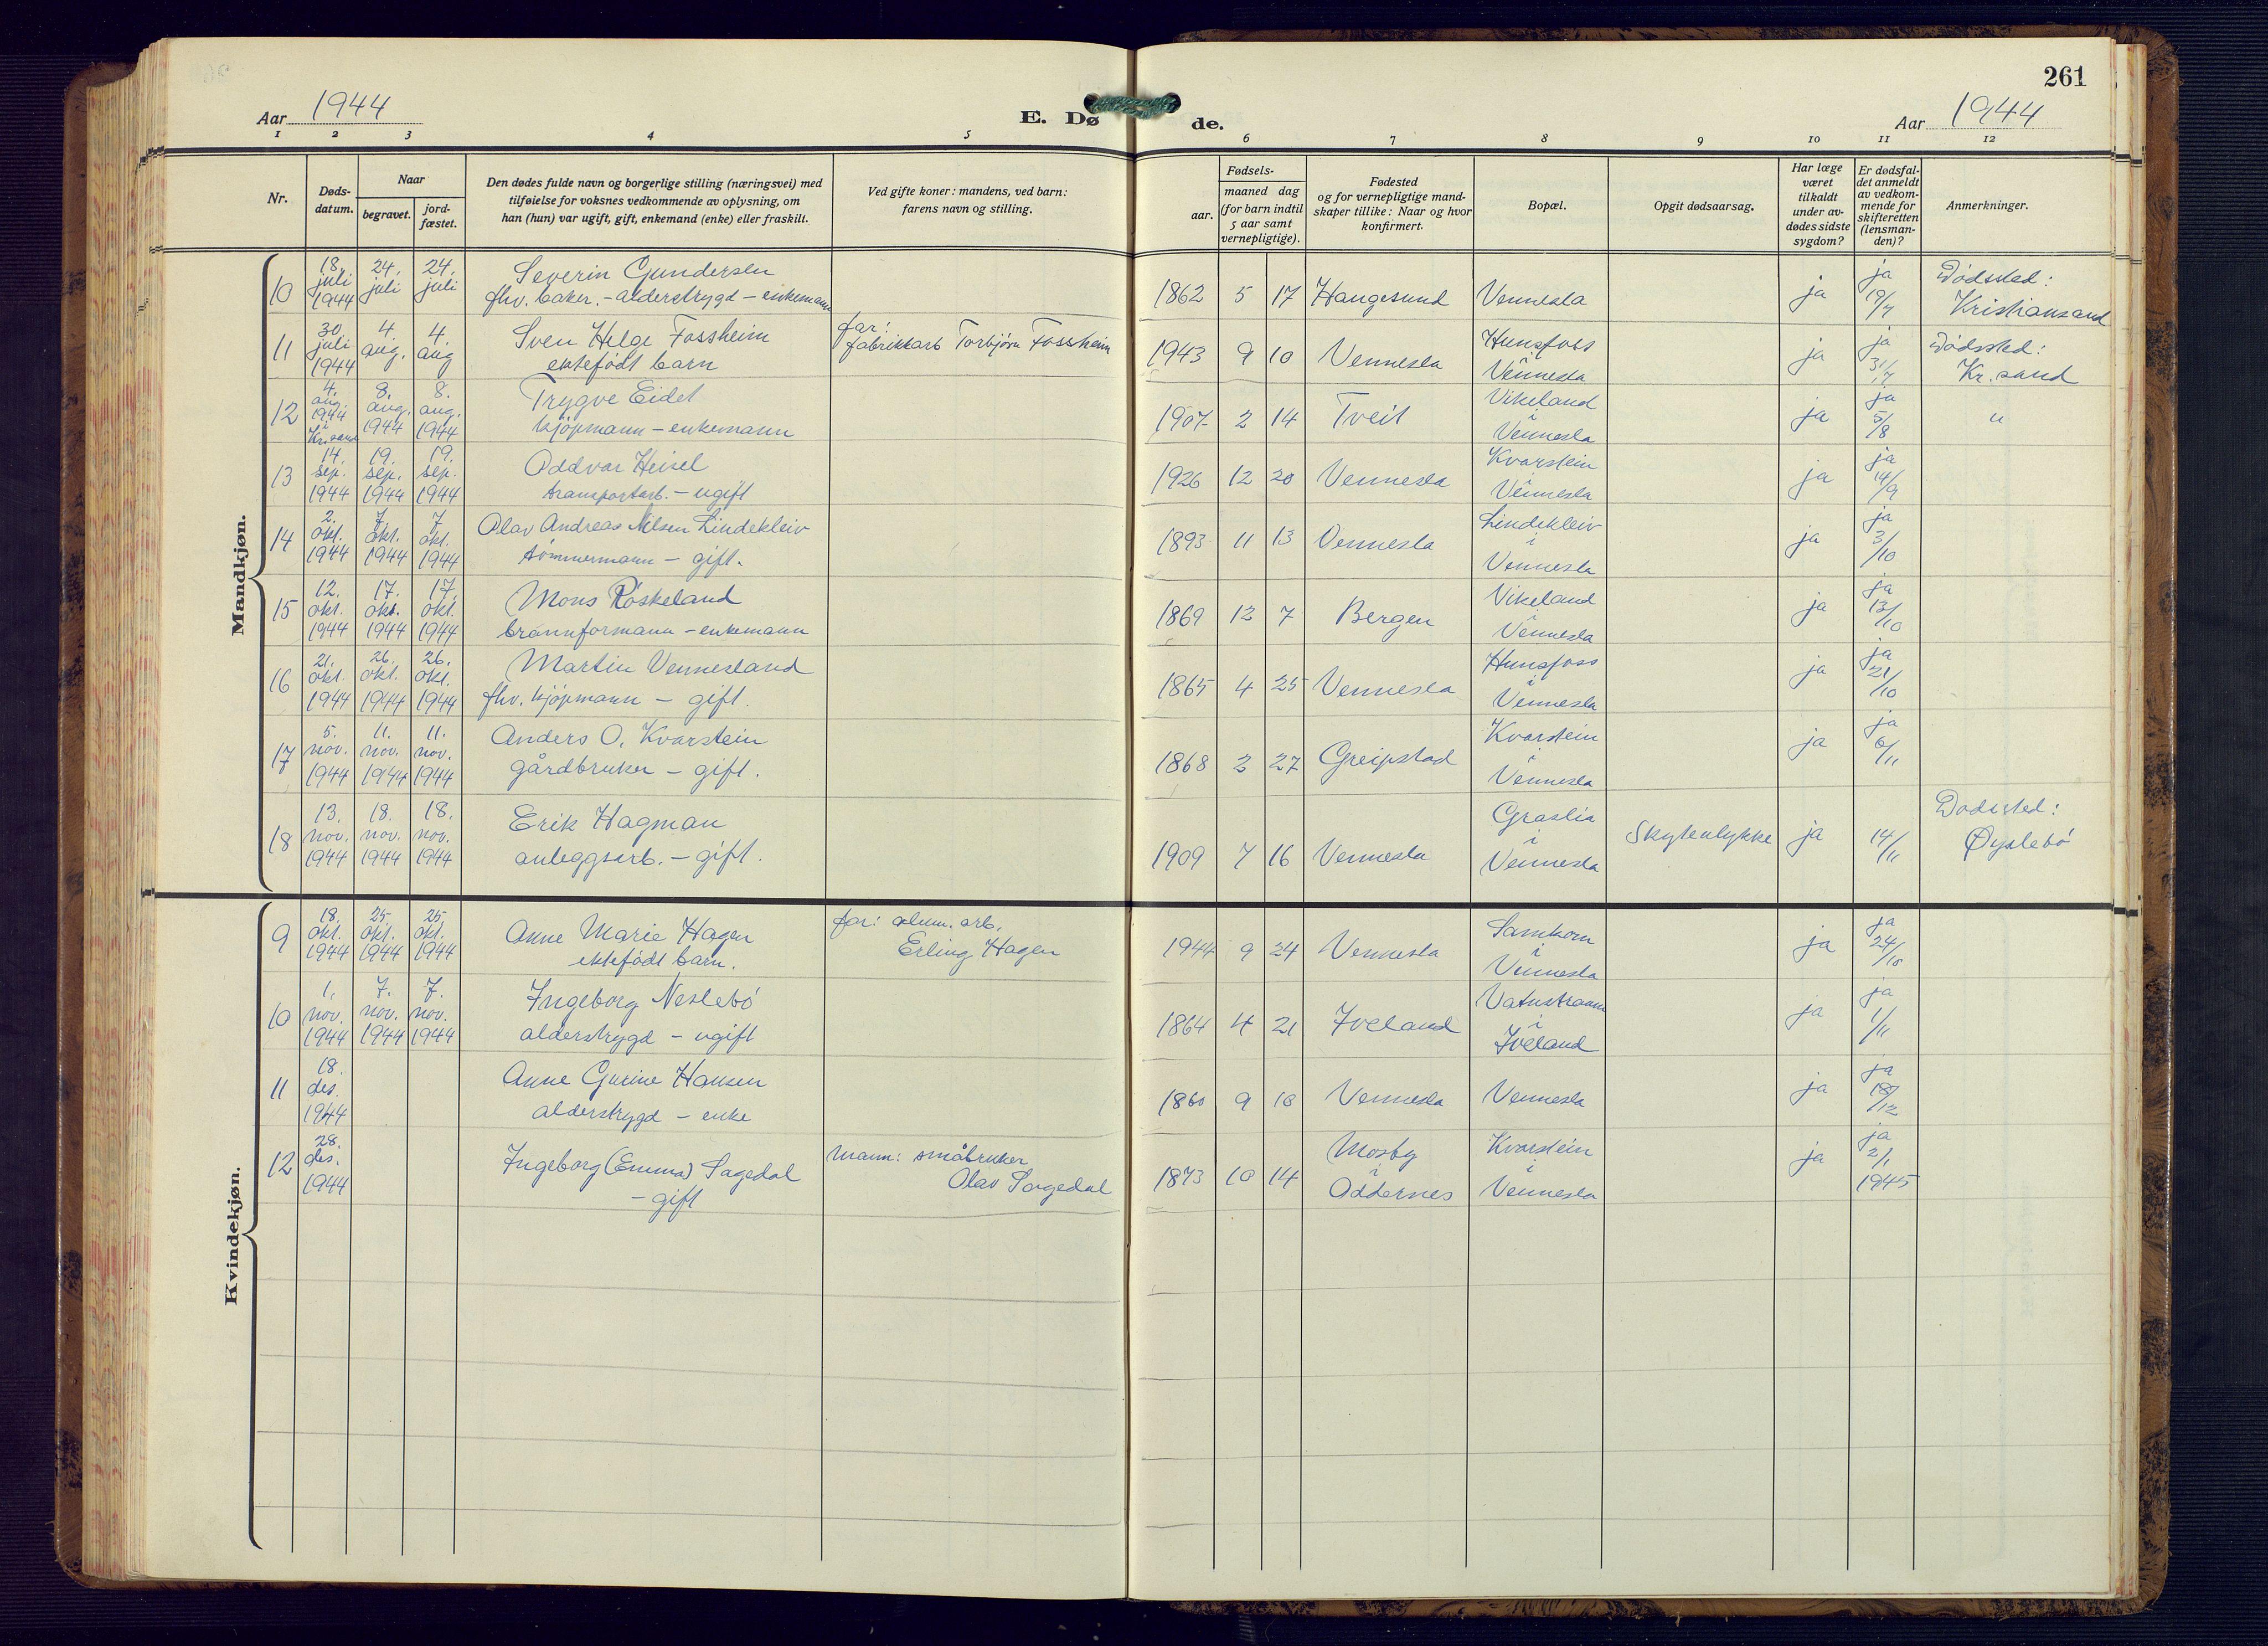 261
Aar 1944
E. Dø
de.
Aar 1944
1 2 3 4 5 6 7 8 9 10 11 12
Nr.
Døds-
datum.
Naar
begravet.
jord-
fæstet.
Den dødes fulde navn og borgerlige stilling (næringsvei) med
tilføielse for voksnes vedkommende av oplysning, om
han (hun) var ugift, gift, enkemand (enke) eller fraskilt.
Ved gifte koner: mandens, ved barn:
farens navn og stilling.
Fødsels-
aar.
maaned dag
(for barn indtil
5 aar samt
vernepligtige).
Fødested
og for vernepligtige mand-
skaper tillike: Naar og hvor
konfirmert.
Bopæl.
Opgit dødsaarsag.
Har læge
været
tilkaldt
under av-
dødes sidste
sygdom?
Er dødsfal-
det anmeldt
av vedkom-
mende for
skifteretten
(lensman-
den)?
Anmerkninger.
Mandkjøn.
10
18.
juli
1944
24.
juli
24.
juli
Severin Gundersen
fhv. baker. - alderstrygd - enkemann
1862 5 17 Haugesund Vennesla
ja
ja
19/7
Dødssted:
Kristiansand
11
30.
juli
1944
4.
aug.
4.
aug
Sven Helge Fossheim
ektefødt barn
far:
fabrikkarb Torbjørn Fossheim
1943 9 10 Vennesla
Hunsfoss
i
Vennesla
ja
ja
31/7
Dødssted:
Kr. sand
12
4.
aug.
1944
i
Kr.sand
8.
aug.
1944
8.
aug.
1944
Trygve Eidet
kjøpmann - enkemann
1907 2 14 Tveit
Vikeland
i
Vennesla
ja
ja
5/8
"
13
14.
sep.
1944
19.
sep.
1944
19.
sep.
1944
Oddvar Heisel
transportarb. - ugift
1926 12 20 Vennesla
Kvarstein
i
Vennesla
ja
ja
14/9
14
2.
okt.
1944
7.
okt.
1944
7.
okt.
1944
Olav Andreas Nilsen Lindekleiv
tømmermann - gift.
1893 11 13 Vennesla
Lindekleiv
i
Vennesla
ja
ja
3/10
15
12.
okt.
1944
17.
okt.
1944
17.
okt.
1944
Mons Røskeland
brannformann - enkemann
1869 12 7 Bergen
Vikeland
i
Vennesla
ja
ja
13/10
16
21.
okt.
1944
26.
okt.
1944
26.
okt.
1944
Martin Vennesland
fhv. kjøpmann - gift.
1865 4 25 Vennesla
Hunsfoss
i
Vennesla
ja
ja
21/10
17
5.
nov.
1944
11.
nov.
1944
11.
nov.
1944
Anders O. Kvarstein
gårdbruker - gift.
1868 2 27 Greipstad
Kvarstein
i
Vennesla
ja
ja
6/11
18
13.
nov.
1944
18.
nov.
1944
18.
nov.
1944
Erik Hagman
anleggsarb. - gift.
1909 7 16 Vennesla
Graslia
i
Vennesla
Skyteulykke
ja
14/11
Dødssted:
Øyslebø
Kvindekjøn.
9
18.
okt.
1944
25.
okt.
1944
25.
okt.
1944
Anne Marie Hagen
ektefødt barn.
far: alum. arb.
Erling Hagen
1944 9 24 Vennesla
Samkom
i
Vennesla
ja
ja
24/10
10
1.
nov.
1944
7.
nov.
1944
7.
nov.
1944
Ingeborg Neslebø
alderstrygd - ugift
1864 4 21 Iveland
Vatnstraum
i
Iveland
ja
ja
1/11
11
18.
des.
1944
Anne Gurine Hansen
alderstrygd - enke
1860 9 18 Vennesla Vennesla
ja
ja
18/12
12
28.
des.
1944
Ingeborg (Emma) Sagedal
- gift
Mann: småbruker
Olav Sagedal
1873 10 14
Mosby
i
Oddernes
Kvarstein
i
Vennesla
ja
ja
2/1
1945